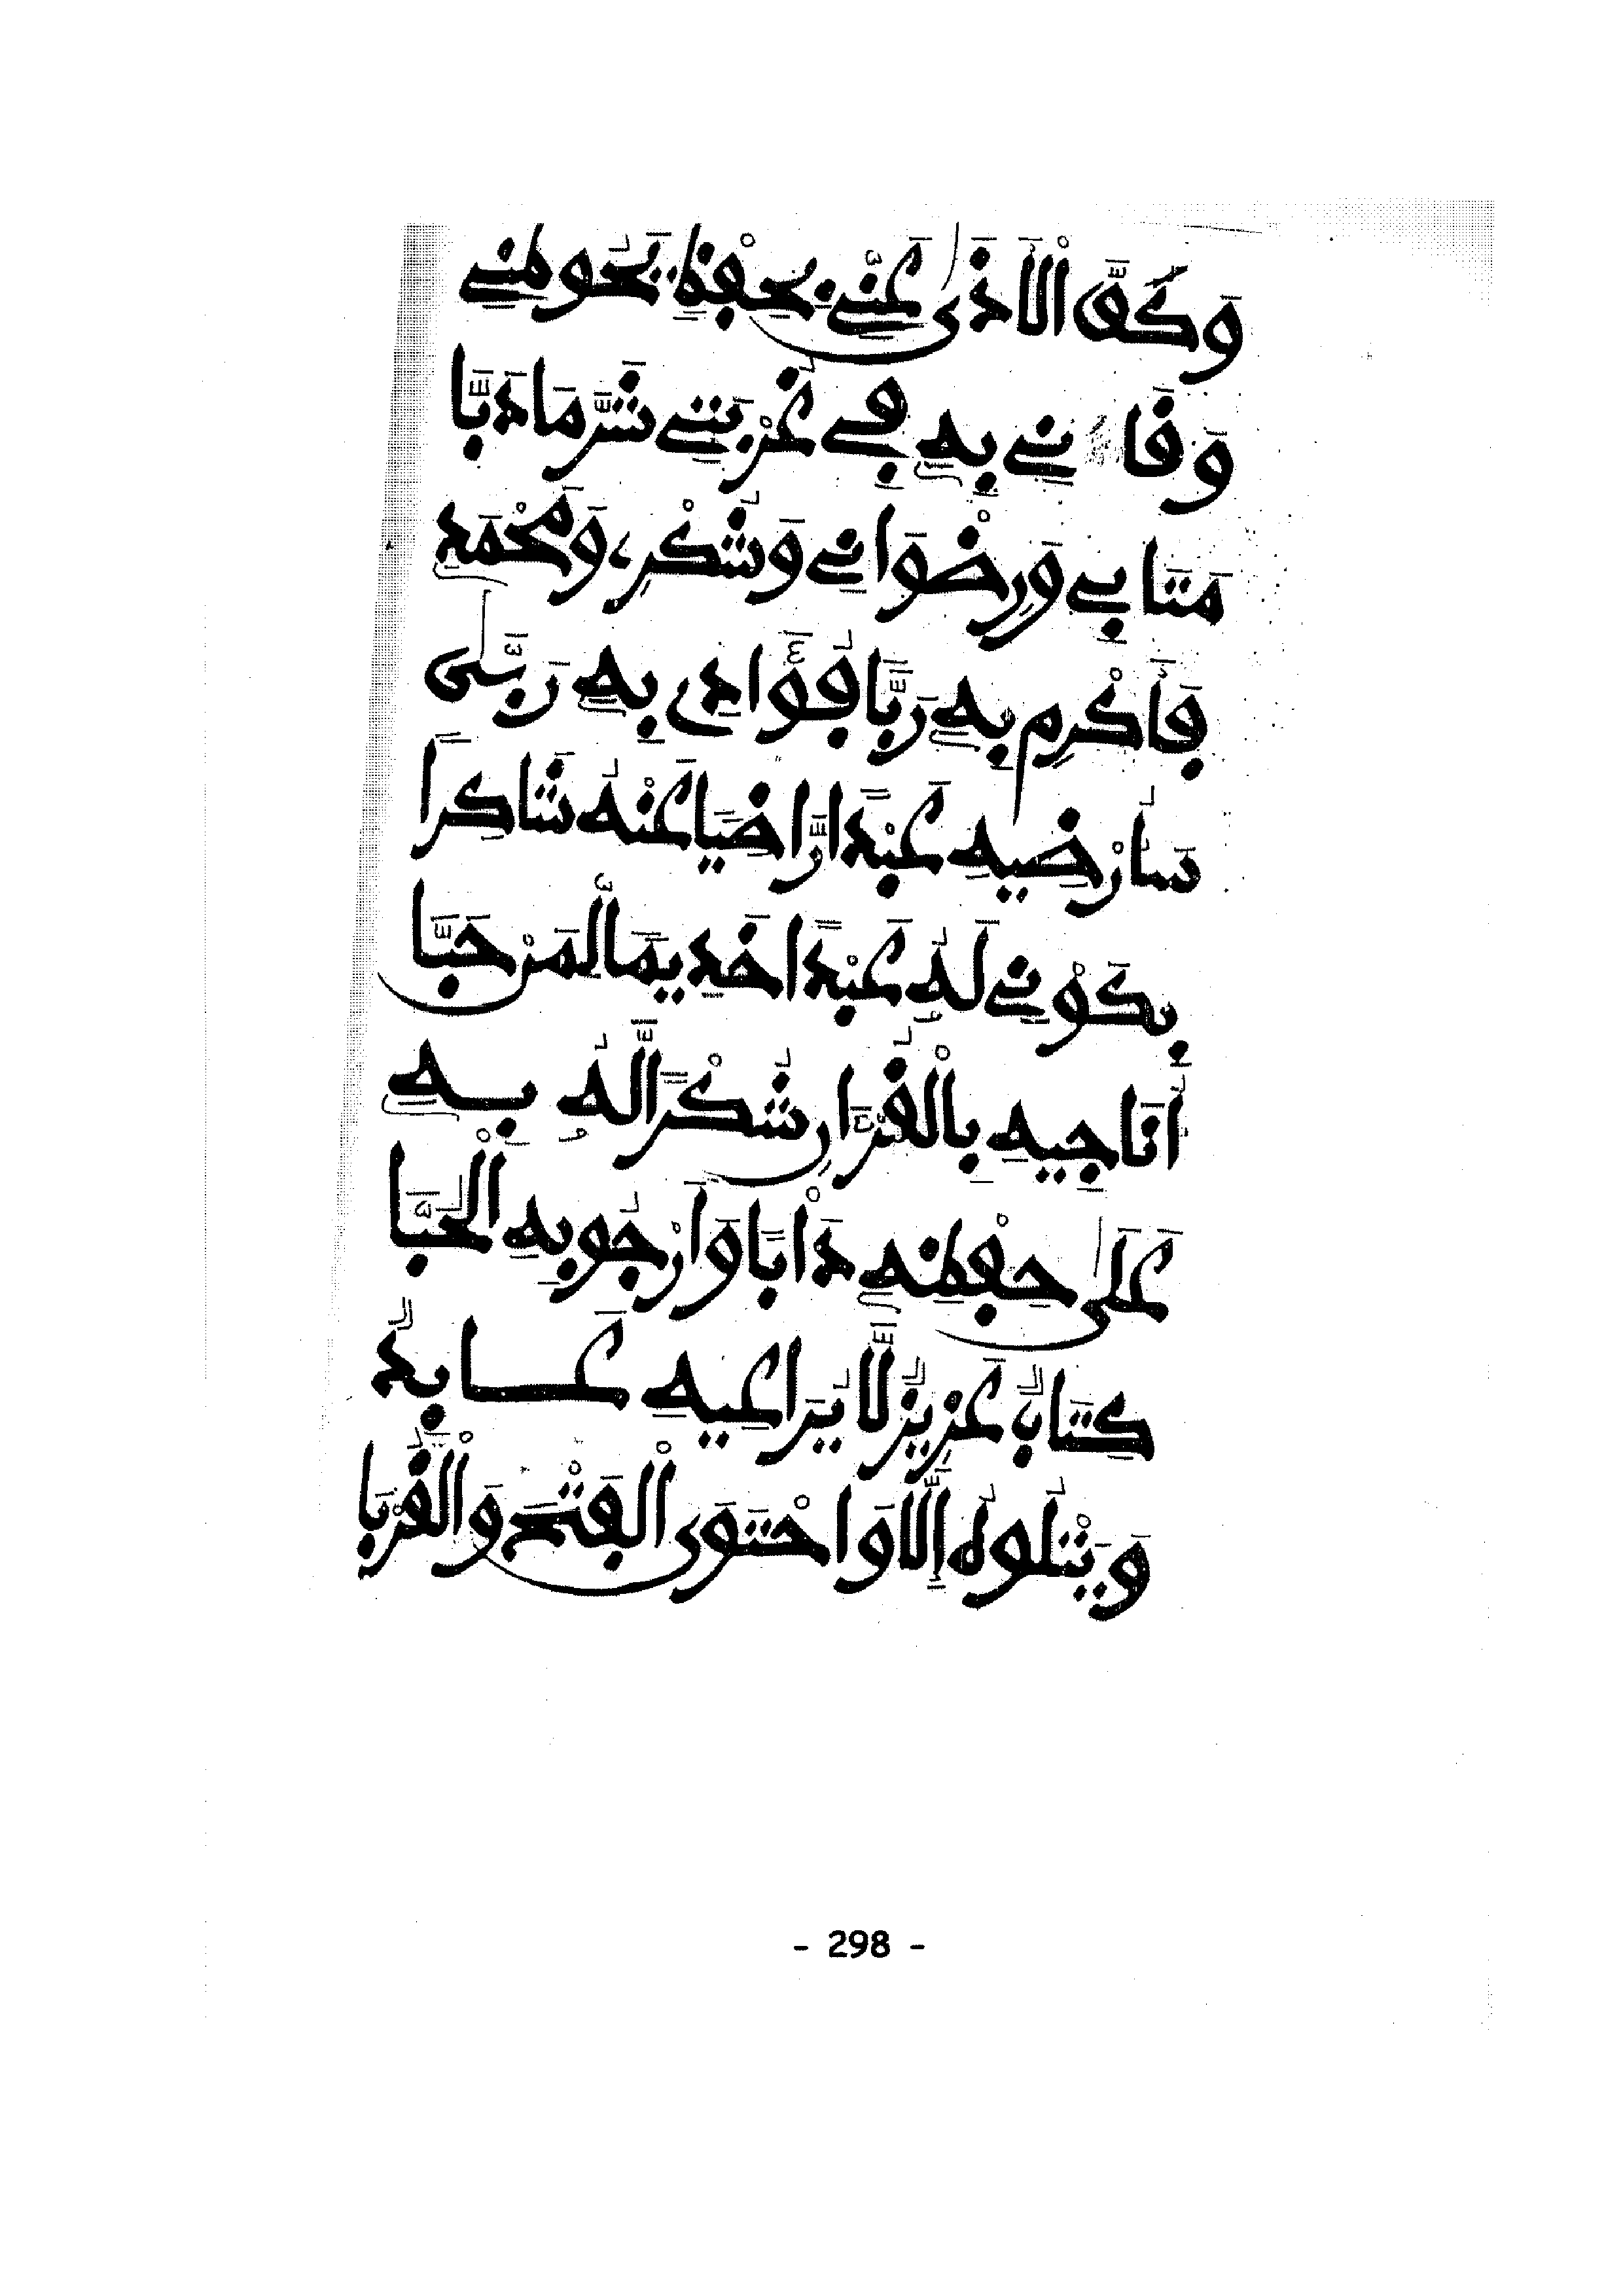 وَكَفَّ الْأَذَى عَنِّي بِحِفْظٍ يَحُوطُنِي
وَقَانِي بِهِ فِي غُرْبَتِي شَرَّ مَا دَبَّا
مَتَابِي وَرِضْوَانِي وَشُكْرِي وَمَحْمَدِ
فَأَكْرِم بِهِ رَبًّا فُؤَادِي بِهِ رَبَّى
سَأُرْضِيهِ عَبْدًا رَّاضِيًا عَنْهُ شَاكِرًا
بِكَوْنِي لَهُ عَبْدًا خَدِيمًا لَّمَرْحَبَّا
أُنَاجِيهِ بِالْقُرْءَانِ شُكْرًا لَّهُ بِهِ
عَلَى حِفْظِهِ دَأْبًا وَأَرْجُو بِهِ الْحُبَّا
كِتَابٌ عَزِيزٌ لَّا يُرَاعِيهِ عَابِدٌ
وَيَتْلُوهُ إِلَّا وَاحْتَوَى الْفَتْحَ وَالْقُرْبَا
- 298 -